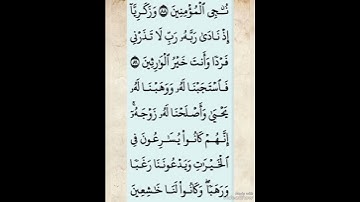 نُـۨجِى الْمُؤْمِنِيْنَ ۝٨٨ وَزَكَرِيَّاۤ
اِذْ نَادٰى رَبَّهٗ رَبِّ لَا تَذَرْنِىْ
فَرْدًا وَّاَنْتَ خَيْرُ الْوٰرِثِيْنَ ۝٨٩
فَاسْتَجَبْنَا لَهٗ وَوَهَبْنَا لَهٗ
يَحْيٰى وَاَصْلَحْنَا لَهٗ زَوْجَهٗ ؕ
اِنَّهُمْ كَانُوْا يُسٰرِعُوْنَ فِى
الْخَيْرٰتِ وَيَدْعُوْنَنَا رَغَبًا
وَّرَهَبًا ؕ وَكَانُوْا لَنَا خٰشِعِيْنَ